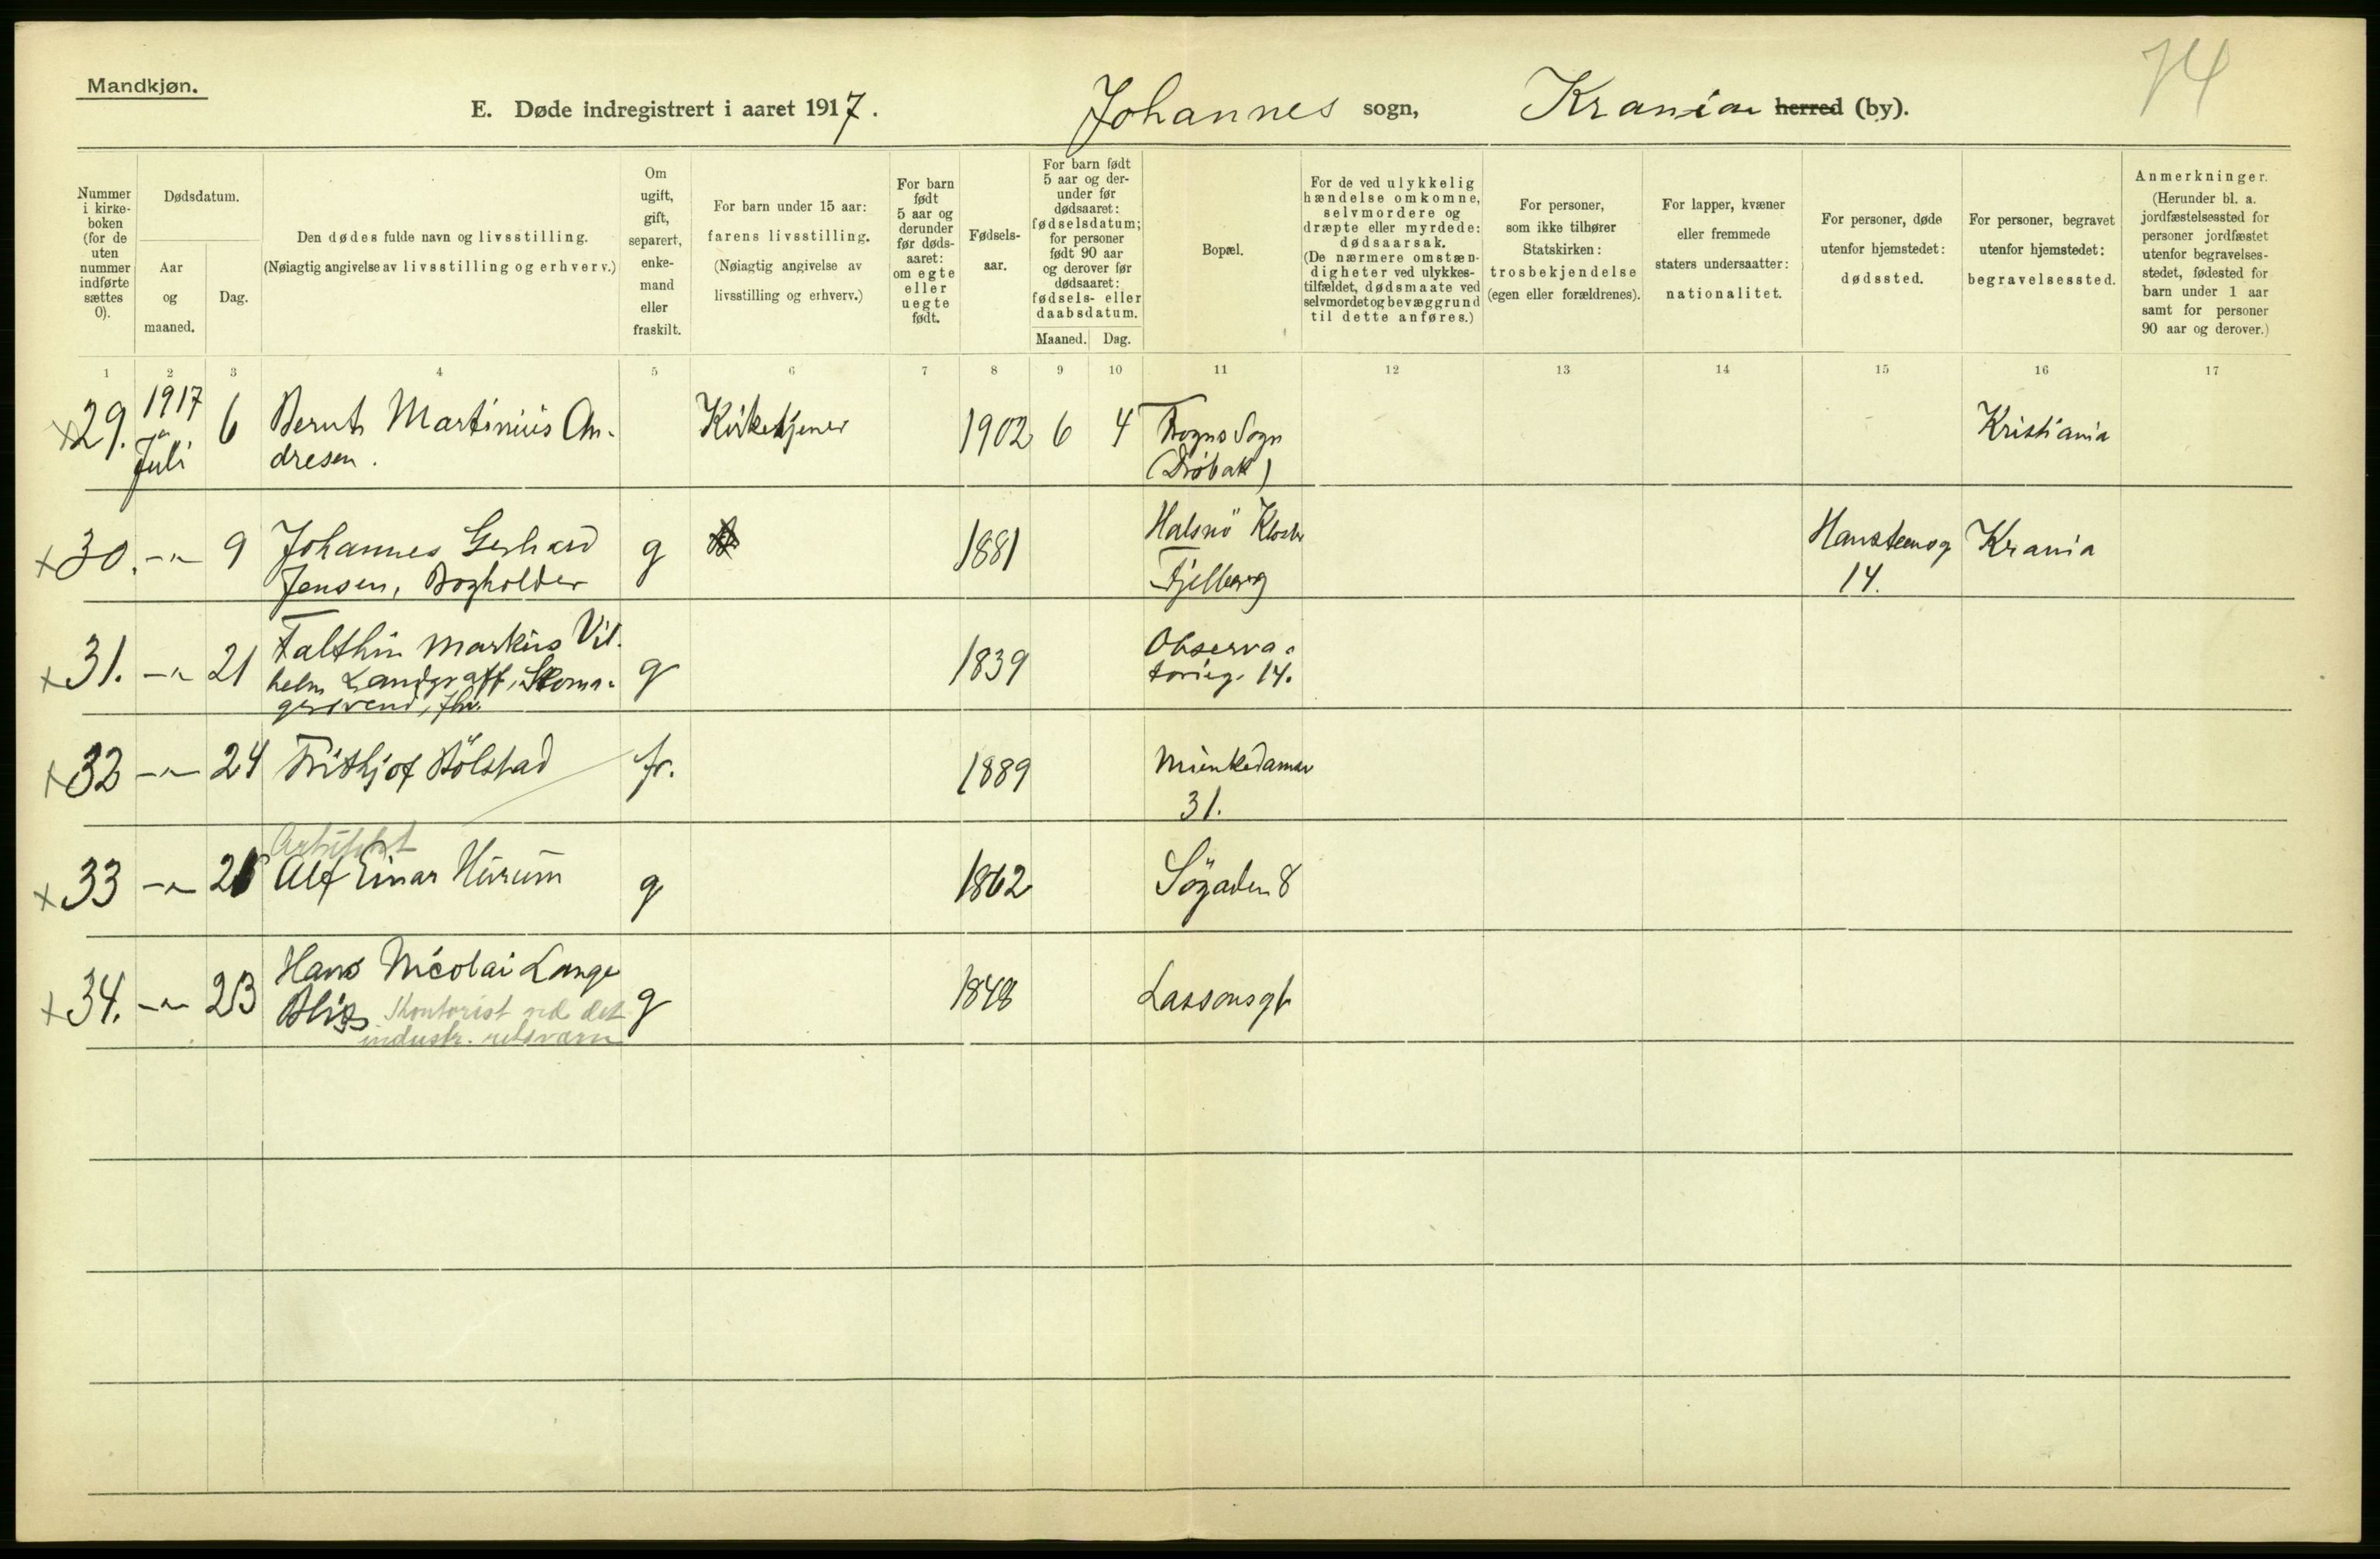 74
Mandkjøn.
E. Døde indregistrert i aaret 1917. Johannes sogn, Krania herred (by).
Nummer i kirkeboken (for de uten nummer indførte sættes 0).
Dødsdatum.
Aar og maaned.
Dag.
Den dødes fulde navn og livsstilling.
(Nøiagtig angivelse av livsstilling og erhverv.)
Om ugift, gift, separert, enkemand eller fraskilt.
For barn under 15 aar: farens livsstilling. (Nøiagtig angivelse av livsstilling og erhverv.)
For barn født 5 aar og derunder før dødsaaret: om egte eller uegte født.
Fødselsaar.
For barn født 5 aar og derunder før dødsaaret: fødselsdatum; for personer født 90 aar og derover før dødsaaret: fødsels- eller daabsdatum.
Maaned. Dag.
Bopæl.
For de ved ulykkelig hændelse omkomne, selvmordere og dræpte eller myrdede: dødsaarsak. (De nærmere omstændigheter ved ulykkestilfældet, dødsmaate ved selvmordet og bevæggrund til dette anføres.)
For personer, som ikke tilhører Statskirken: trosbekjendelse (egen eller forældrenes).
For lapper, kvæner eller fremmede staters undersaatter: nationalitet.
For personer, døde utenfor hjemstedet: dødssted.
For personer, begravet utenfor hjemstedet: begravelsessted.
Anmerkninger. (Herunder bl. a. jordfæstelsessted for personer jordfæstet utenfor begravelsesstedet, fødested for barn under 1 aar samt for personer 90 aar og derover.)
1 2 3 4 5 6 7 8 9 10 11 12 13 14 15 16 17
×29. 1917 Juli 6 Bernt Martinius Andresen. Kirketjener 1902 6 4 Frogns Sogn (Drøbak) Kristiania
×30. -"- 9 Johannes Gerhard g 1881 Halsnö Kloster Hansteensg Krania
Jensen, Bogholder Fjelberg 14.
×31. -"- 21 Falthin Markus Vil- g 1839 Observa-
helm Landgraff, Skoma- torieg. 14.
gersvend, fhv.
×32 -"- 24 Frithjof Bölstad fr. 1889 Munkedamsv
31.
Artüst
×33 -"- 21 Alf Einar Hurum g 1862 Sögaden 8
×34. -"- 23 Hans Nicolai Lange g 1848 Lassonsgt
Blix Kontorist ved det
industr. retsværn